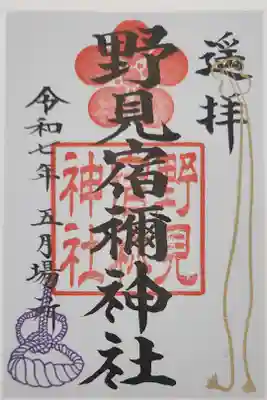 遥拝
野見宿禰神社
野見
宿祢
神社
令和七年 五月場所